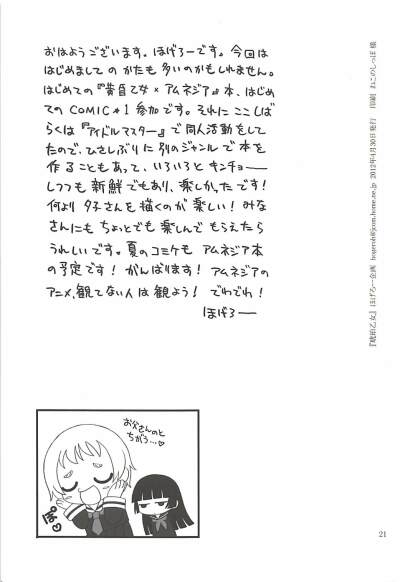 おはようございます。ほげろーです。今回は
はじめまして のかたも 多いのかもしれません。
はじめての『黄昏乙女×アムネジア』本、はじめ
ての COMIC★1 参加です。それに ここしば
らくは『アイドルマスター』で 同人活動をして
たので、ひさしぶりに 別のジャンルで 本を
作る こともあって、いろいろと キンチョー
しつつも 新鮮でもあり、楽しかったです!
何より 夕子さんを 描くのが 楽しい! みな
さんにも ちょっとでも 楽しんで もらえたら
うれしいです。夏のコミケも アムネジア本
の予定です! がんばります! アムネジアの
アニメ、観てない人は 観よう! でわでわ!
ほげろー
『琥珀乙女』 ほげろー企画 hogeroh@jcom.home.ne.jp 2012年4月30日発行 印刷 ねこのしっぽ 様
お父さんのと
ちがう…♡
ぽ♡
21